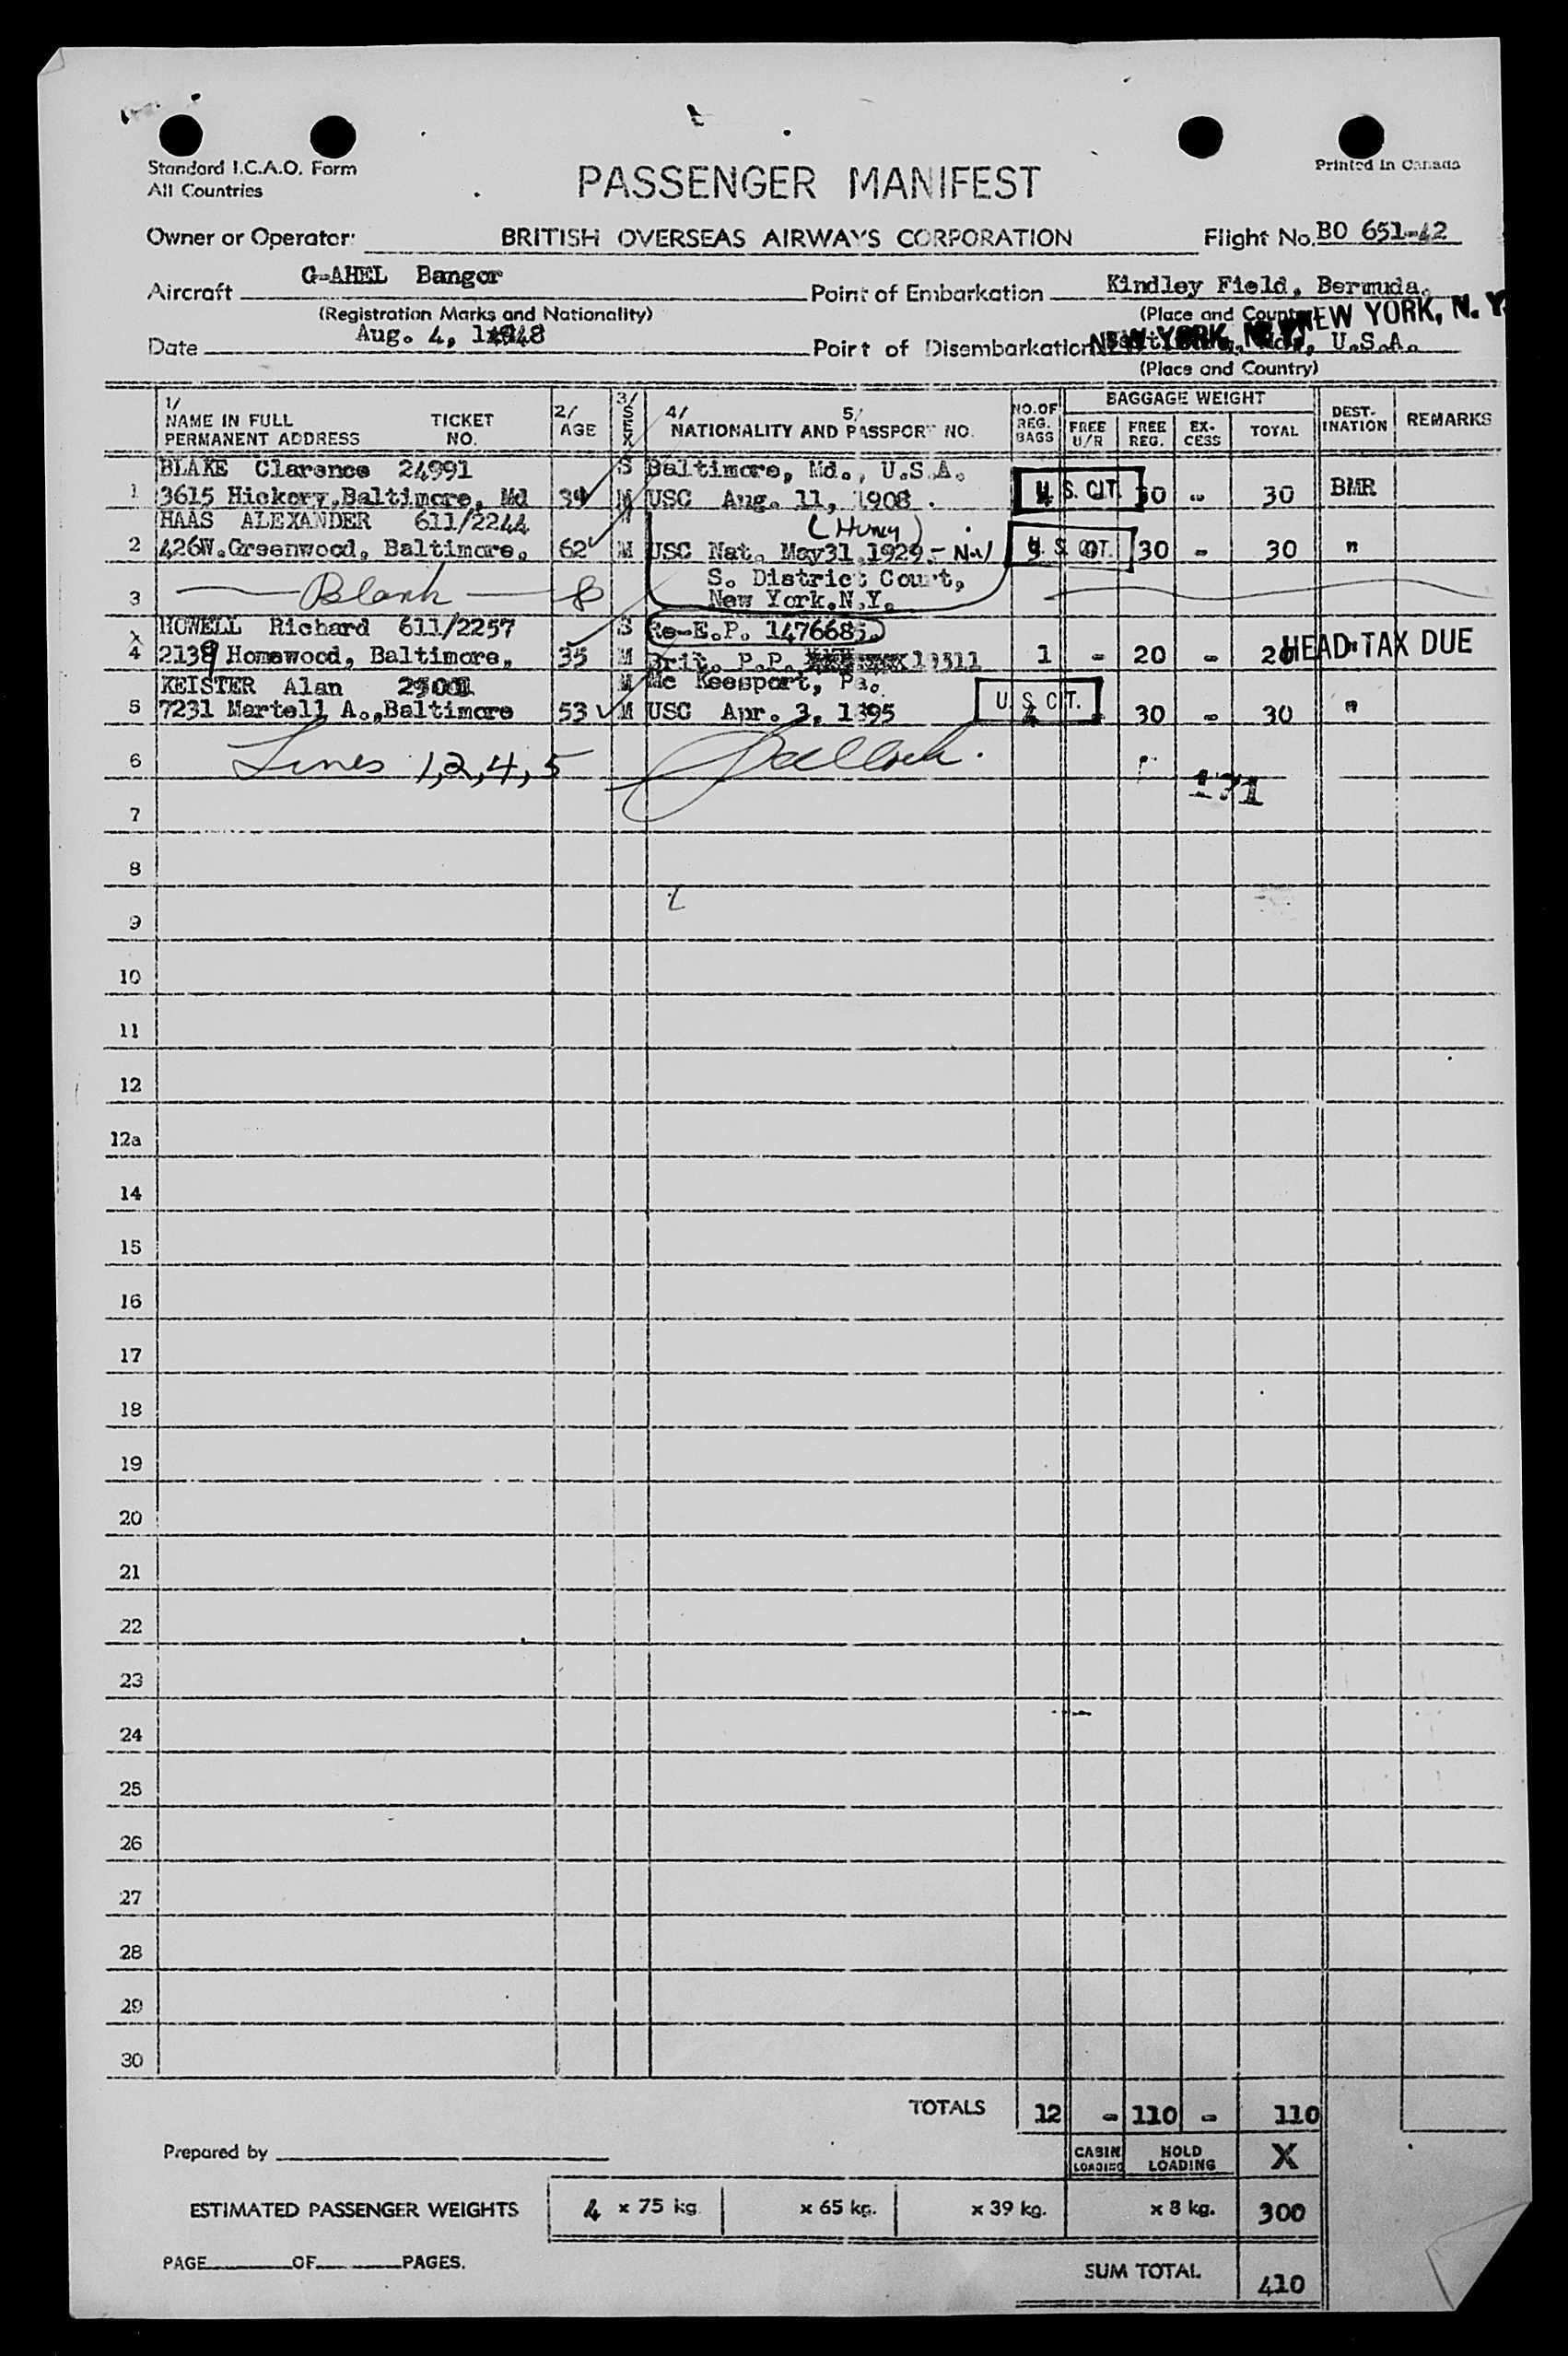 Standard I.C.A.O. Form
All Countries
Printed in Canada
PASSENGER MANIFEST
Owner or Operator: BRITISH OVERSEAS AIRWAYS CORPORATION Flight No. BO 651-42
Aircraft G-AHEL Bangor Point of Embarkation Kindley Field, Bermuda.
(Registration Marks and Nationality) (Place and Country)
NEW YORK, N. Y.
Date Aug. 4, 1948 Point of Disembarkation NEW YORK, N. Y. U.S.A.
(Place and Country)
1/ NAME IN FULL PERMANENT ADDRESS TICKET NO. 2/ AGE 3/ SEX 4/ 5/ NATIONALITY AND PASSPORT NO. NO. OF REG. BAGS BAGGAGE WEIGHT FREE U/R FREE REG. EX-CESS TOTAL DEST-INATION REMARKS
BLAKE Clarence 24991 S Baltimore, Md., U.S.A.
1 3615 Hickory, Baltimore, Md 39 M USC Aug. 11, 1908. U.S. CIT. 30 - 30 BMR
HAAS ALEXANDER 611/2244 M (Hung)
2 426W. Greenwood, Baltimore, 62 M USC Nat. May31,1929.- U.S. CIT. 30 - 30 "
S. District Court,
3 Blank New York.N.Y.
HOWELL Richard 611/2257 S Re-E.P. 1476685.
4 2139 Homewood, Baltimore, 35 M Brit. P.P. 19511 1 - 20 - 20 " HEAD TAX DUE
KEISTER Alan M Mc Keesport, Pa.
5 7231 Martell A., Baltimore 53 M USC Apr. 3, 1895 U.S. CIT. 30 - 30 "
6 Lines 1,2,4,5
171
7
8
9
10
11
12
12a
14
15
16
17
18
19
20
21
22
23
24
25
26
27
28
29
30
TOTALS 12 - 110 - 110
Prepared by CABIN LOADING HOLD LOADING X
ESTIMATED PASSENGER WEIGHTS 4 x 75 kg. x 65 kg. x 39 kg. x 8 kg. 300
PAGE OF PAGES.
SUM TOTAL 410